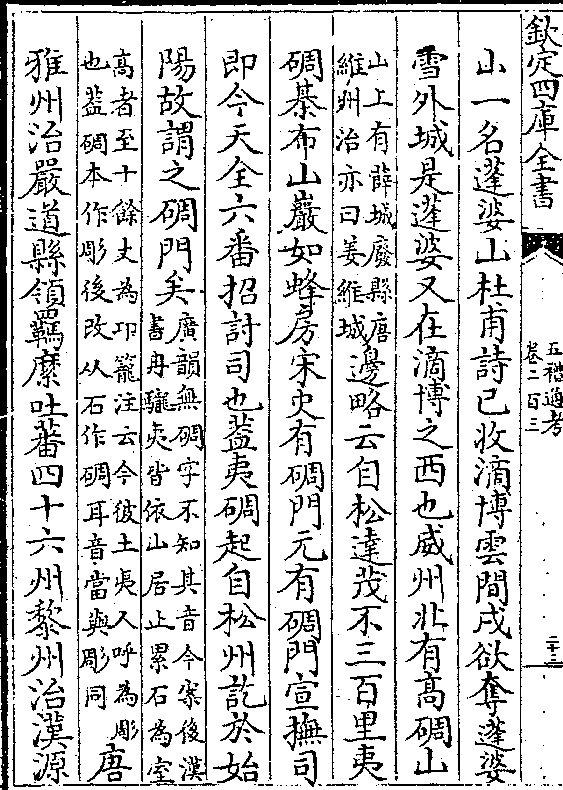 欽定四庫全書
五禮通考
卷二百三
二十三
山一名蓬婆山杜甫詩已收滴博雲間戍欲奪蓬婆
雪外城是蓬婆又在滴博之西也威州北有高碉山
山上有薛城廢縣唐
維州治亦曰姜維城
邊略云自松達茂不三百里夷
碉棊布山巖如蜂房宋史有碉門元有碉門宣撫司
即今天全六番招討司也蓋夷碉起自松州訖於始
陽故謂之碉門矣
廣韻無碉字不知其音今案後漢
書冉駹夷皆依山居止累石為室
高者至十餘丈為邛籠注云今彼土夷人呼為彫
也蓋碉本作彫後改从石作碉耳音當與彫同
唐
雅州治嚴道縣領羈縻吐蕃四十六州黎州治漢源